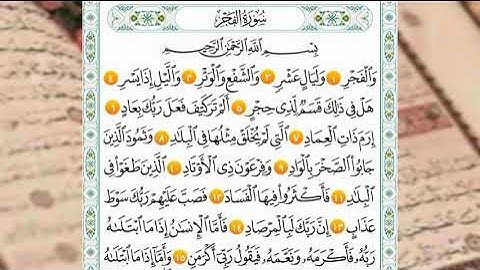 سُورَةُ الفَجْرِ
بِسْمِ اللَّهِ الرَّحْمَٰنِ الرَّحِيمِ
وَالْفَجْرِ ١ وَلَيَالٍ عَشْرٍ ٢ وَالشَّفْعِ وَالْوَتْرِ ٣ وَاللَّيْلِ إِذَا يَسْرِ ٤
هَلْ فِي ذَٰلِكَ قَسَمٌ لِّذِي حِجْرٍ ٥ أَلَمْ تَرَ كَيْفَ فَعَلَ رَبُّكَ بِعَادٍ ٦
إِرَمَ ذَاتِ الْعِمَادِ ٧ الَّتِي لَمْ يُخْلَقْ مِثْلُهَا فِي الْبِلَادِ ٨ وَثَمُودَ الَّذِينَ
جَابُوا الصَّخْرَ بِالْوَادِ ٩ وَفِرْعَوْنَ ذِي الْأَوْتَادِ ١٠ الَّذِينَ طَغَوْا فِي
الْبِلَادِ ١١ فَأَكْثَرُوا فِيهَا الْفَسَادَ ١٢ فَصَبَّ عَلَيْهِمْ رَبُّكَ سَوْطَ
عَذَابٍ ١٣ إِنَّ رَبَّكَ لَبِالْمِرْصَادِ ١٤ فَأَمَّا الْإِنسَانُ إِذَا مَا ابْتَلَاهُ
رَبُّهُ فَأَكْرَمَهُ وَنَعَّمَهُ فَيَقُولُ رَبِّي أَكْرَمَنِ ١٥ وَأَمَّا إِذَا مَا ابْتَلَاهُ